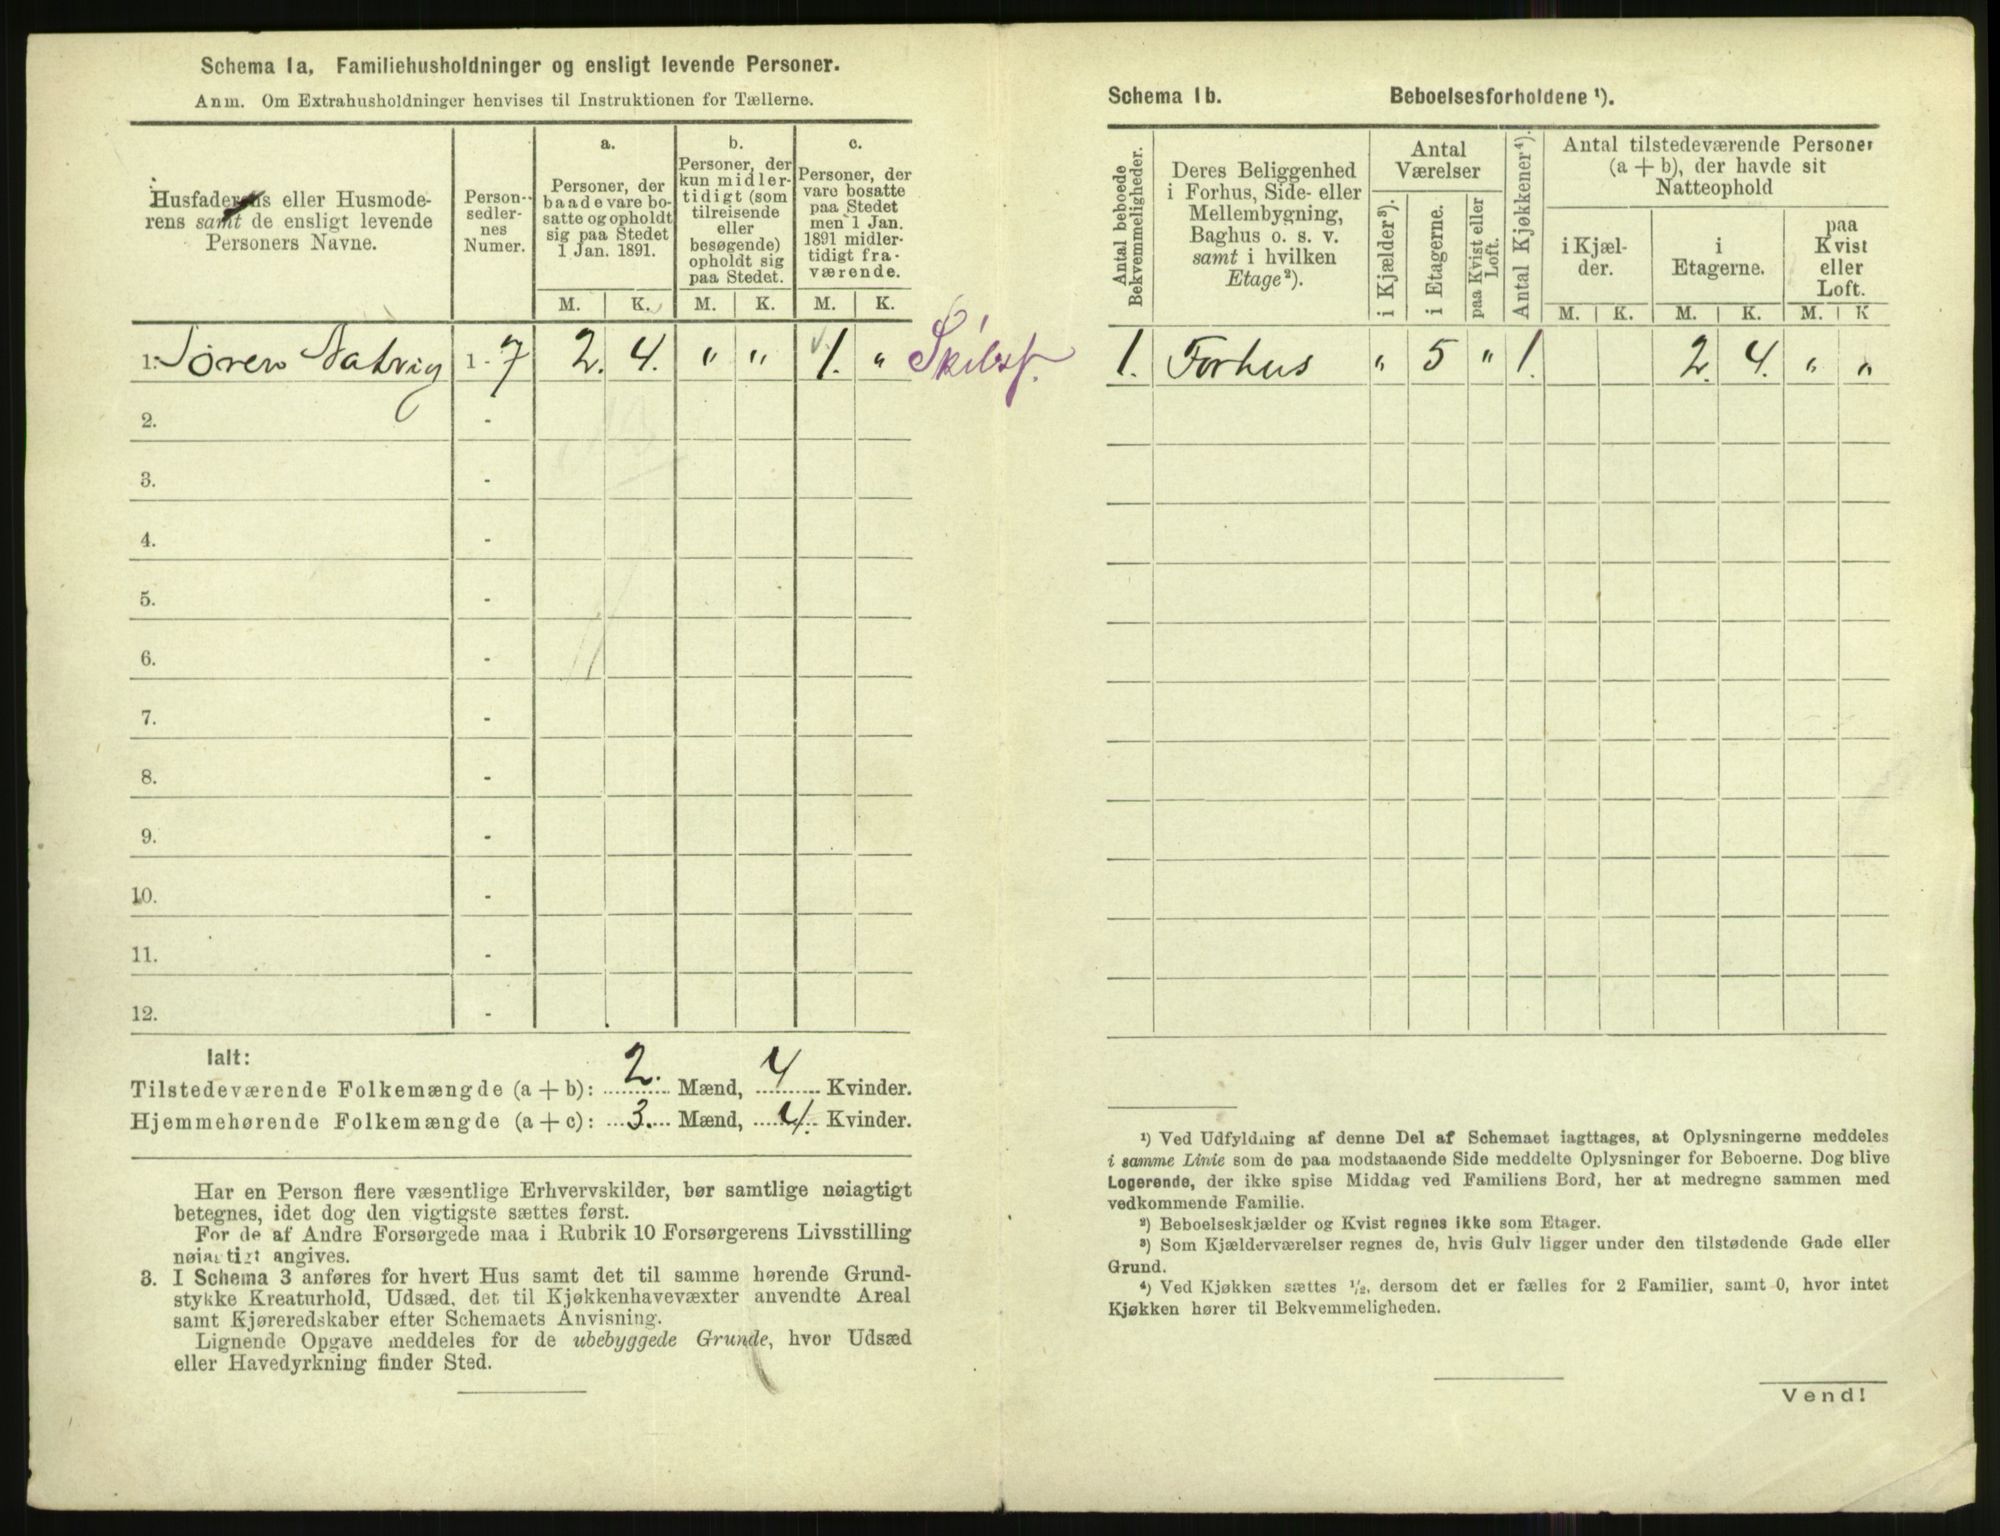 Schema 1a, Familiehusholdninger og ensligt levende Personer.
Anm. Om Extrahusholdninger henvises til Instruktionen for Tællerne.
Husfaderens eller Husmode-
rens samt de ensligt levende
Personers Navne.
Person-
sedler-
nes
Numer.
a.
Personer, der
baade vare bo-
satte og opholdt
sig paa Stedet
1 Jan. 1891.
b.
Personer, der
kun midler-
tidigt (som
tilreisende
eller
besøgende)
opholdt sig
paa Stedet.
c.
Personer, der
vare bosatte
paa Stedet
men 1 Jan.
1891 midler-
tidigt fra-
værende.
M. K. M. K. M. K.
1. Søren Natvig 1 - 7 2. 4. " " 1. " Skibsf.
2. -
3. -
4. -
5. -
6. -
7. -
8. -
9. -
10. -
11. -
12. -
Ialt:
Tilstedeværende Folkemængde (a + b): 2. Mænd, 4 Kvinder.
Hjemmehørende Folkemængde (a + c): 3. Mænd, 4. Kvinder.
Har en Person flere væsentlige Erhvervskilder, bør samtlige nøiagtigt
betegnes, idet dog den vigtigste sættes først.
For de af Andre Forsørgede maa i Rubrik 10 Forsørgerens Livsstilling
nøiagtigt angives.
3. I Schema 3 anføres for hvert Hus samt det til samme hørende Grund-
stykke Kreaturhold, Udsæd, det til Kjøkkenhavevæxter anvendte Areal
samt Kjøreredskaber efter Schemaets Anvisning.
Lignende Opgave meddeles for de ubebyggede Grunde, hvor Udsæd
eller Havedyrkning finder Sted.
Schema 1b. Beboelsesforholdene ¹).
Antal beboede
Bekvemmeligheder.
Deres Beliggenhed
i Forhus, Side- eller
Mellembygning,
Baghus o. s. v.
samt i hvilken
Etage²).
Antal
Værelser
i Kjælder³).
i Etagerne.
paa Kvist eller
Loft.
Antal Kjøkkener⁴).
Antal tilstedeværende Personer
(a + b), der havde sit
Natteophold
i Kjæl-
der.
i
Etagerne.
paa
Kvist
eller
Loft.
M. K. M. K. M. K
1. Forhus " 5 " 1. 2. 4. " "
¹) Ved Udfyldning af denne Del af Schemaet iagttages, at Oplysningerne meddeles
i samme Linie som de paa modstaaende Side meddelte Oplysninger for Beboerne. Dog blive
Logerende, der ikke spise Middag ved Familiens Bord, her at medregne sammen med
vedkommende Familie.
²) Beboelseskjælder og Kvist regnes ikke som Etager.
³) Som Kjælderværelser regnes de, hvis Gulv ligger under den tilstødende Gade eller
Grund.
⁴) Ved Kjøkken sættes ½, dersom det er fælles for 2 Familier, samt 0, hvor intet
Kjøkken hører til Bekvemmeligheden.
Vend!